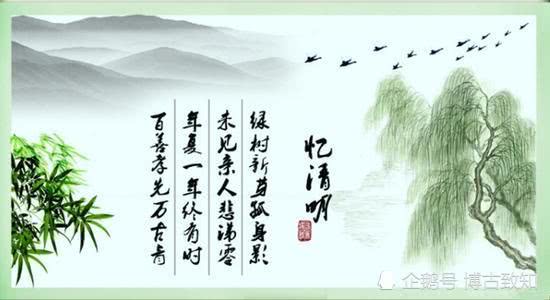 忆清明
绿树新芽孤身影
未见亲人悲涕零
年复一年终有时
百善孝先万古青
企鹅号 博古致知